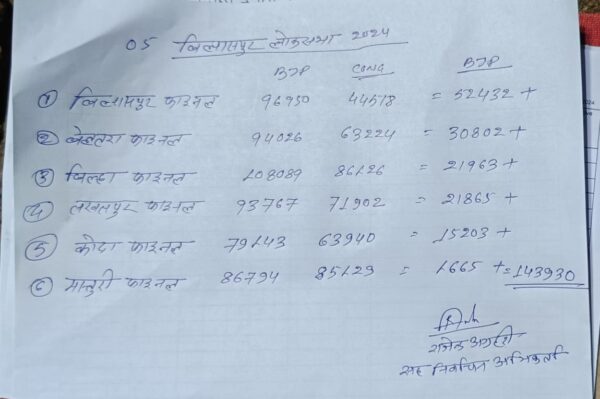 05 बिलासपुर लोकसभा 2024
BJP CONG BJP
① बिलासपुर फाइनल 96950 44518 = 52432 +
② बेलतरा फाइनल 94026 63224 = 30802 +
③ बिल्हा फाइनल 108089 86126 = 21963 +
④ तखतपुर फाइनल 93767 71902 = 21865 +
⑤ कोटा फाइनल 79143 63940 = 15203 +
⑥ मस्तुरी फाइनल 86794 85129 = 1665 + = 143930
राजेन्द्र अग्रहरी
सह निर्वाचन अभिकर्ता